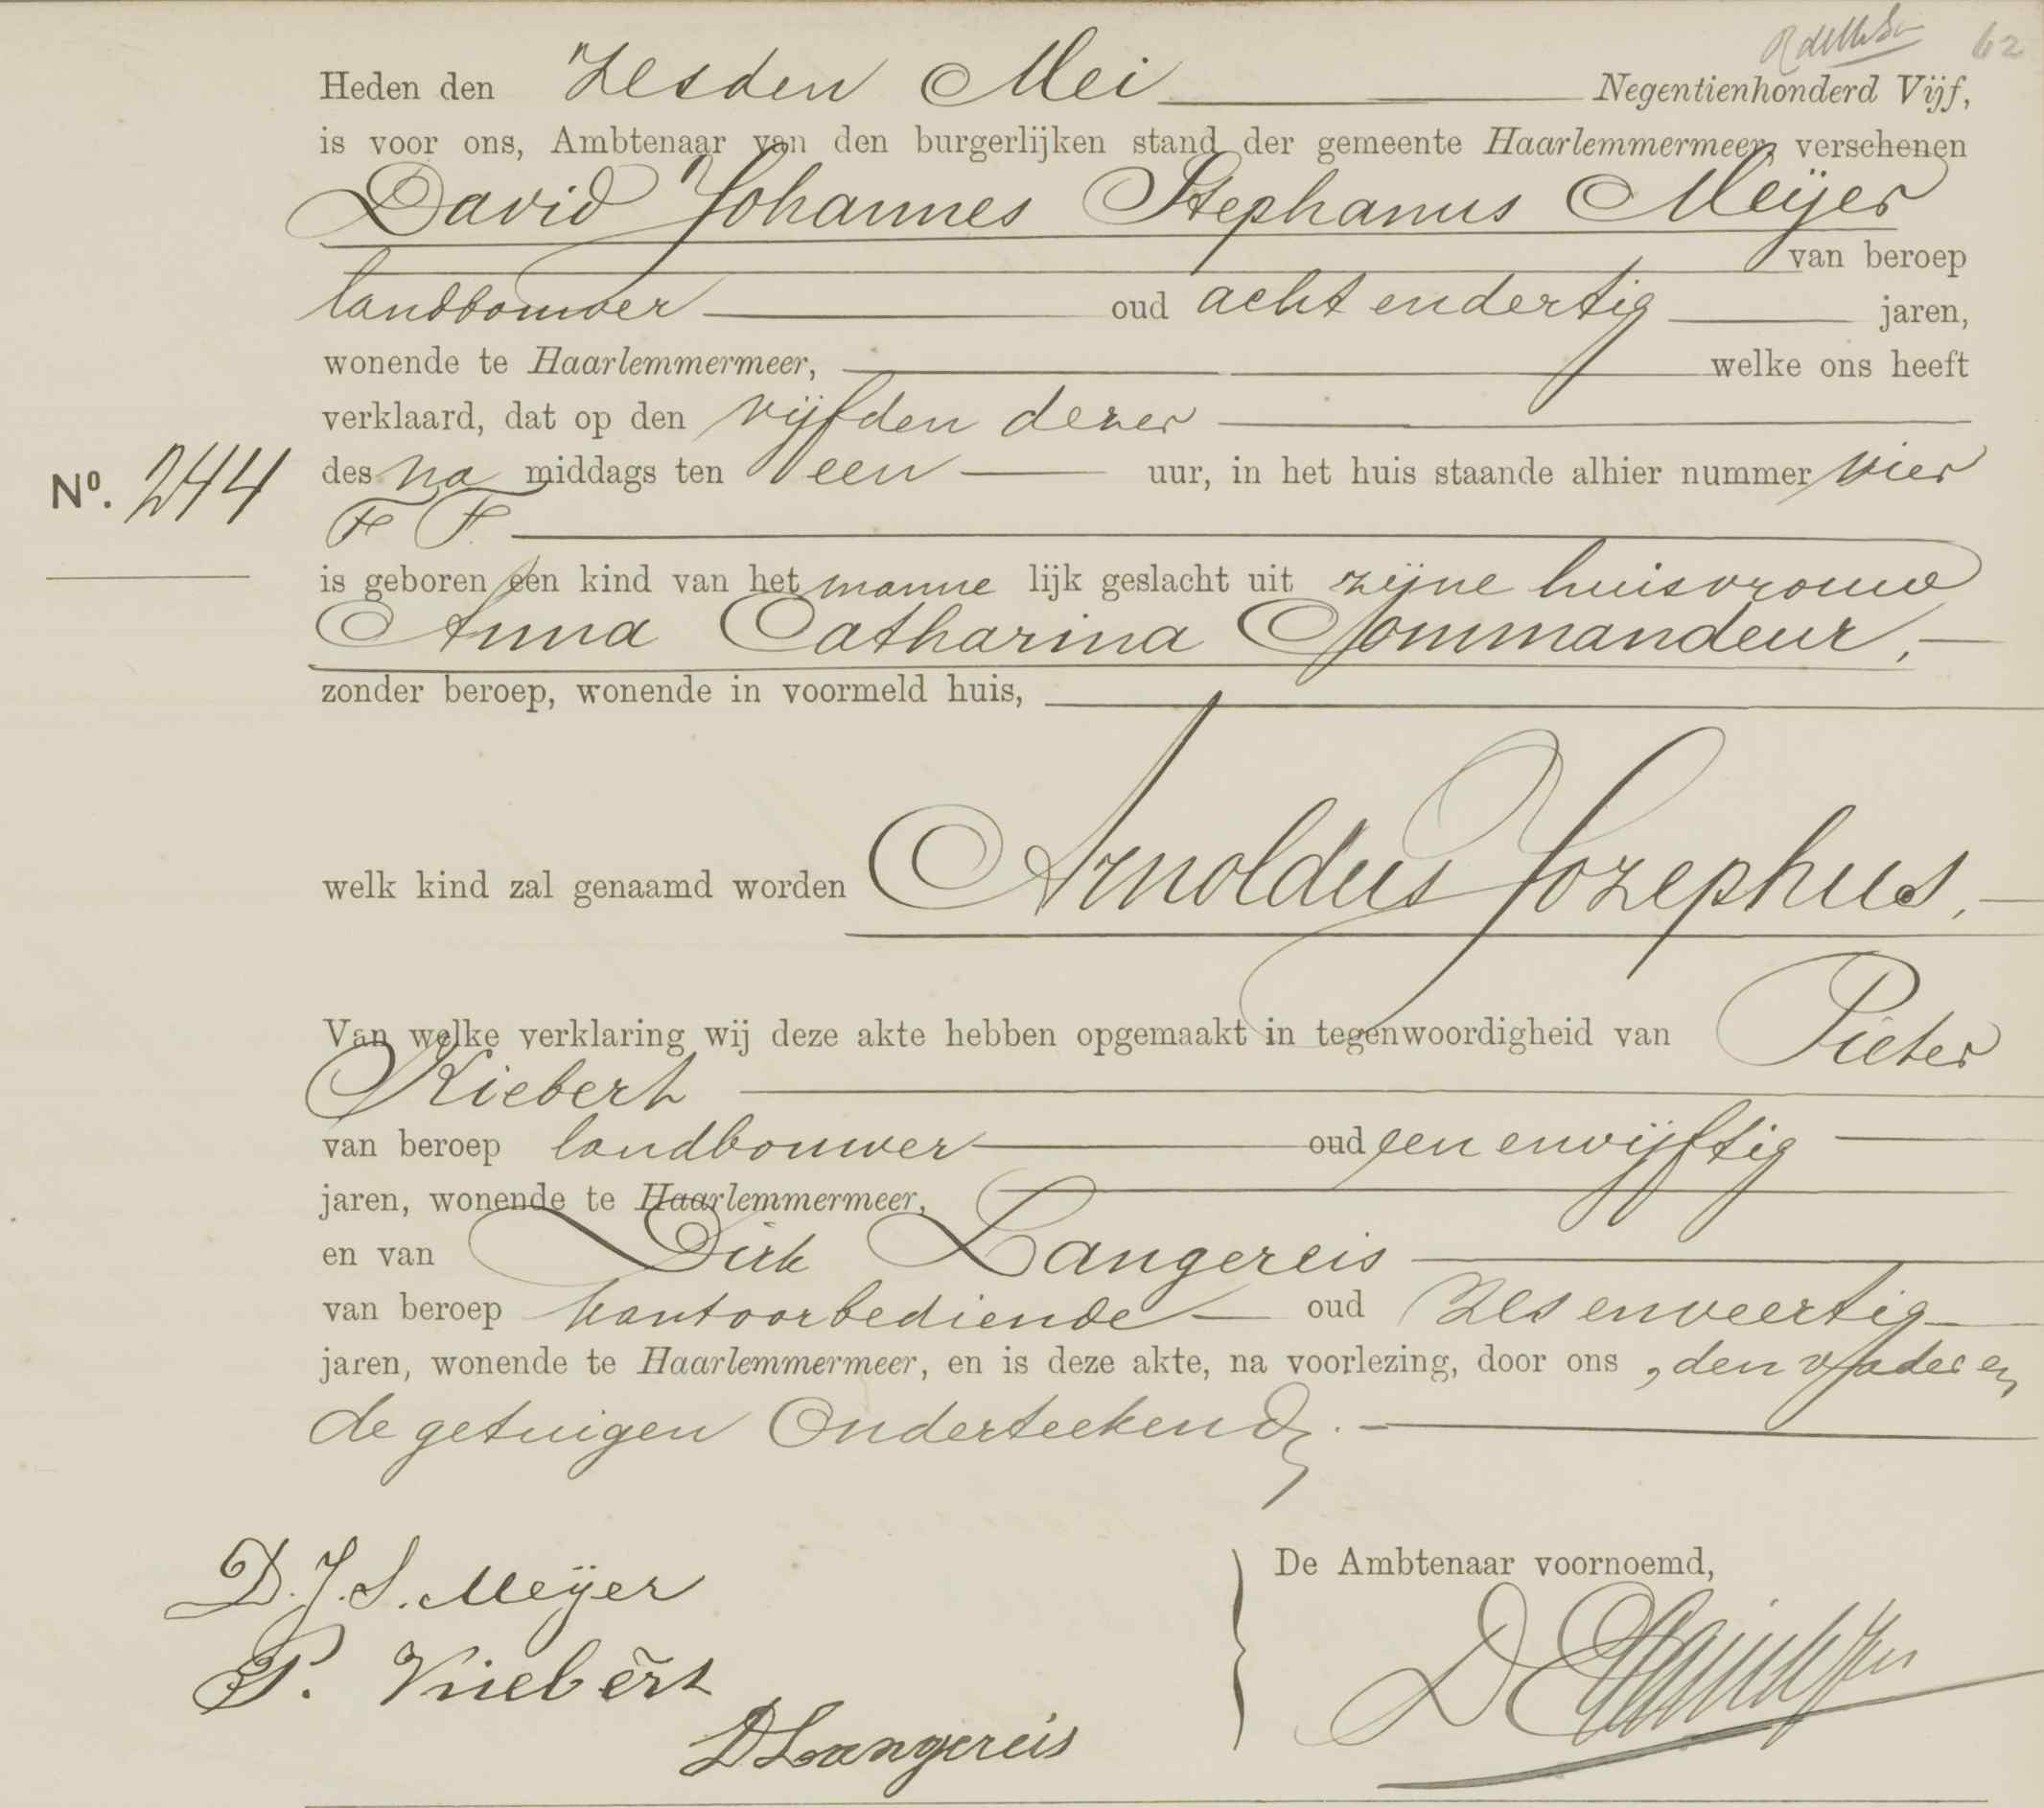 62
Heden den Zesden Mei Negentienhonderd Vijf,
is voor ons, Ambtenaar van den burgerlijken stand der gemeente Haarlemmermeer, verschenen
David Johannes Stephanus Meijer
van beroep
landbouwer oud acht en dertig jaren,
wonende te Haarlemmermeer, welke ons heeft
verklaard, dat op den vijfden dezer
No. 244 des na middags ten een uur, in het huis staande alhier nummer vier
F F.
is geboren een kind van het manne lijk geslacht uit zijne huisvrouw
Anna Catharina Commandeur,
zonder beroep, wonende in voormeld huis,
welk kind zal genaamd worden Arnoldus Jozephus,
Van welke verklaring wij deze akte hebben opgemaakt in tegenwoordigheid van Pieter
Kiebert
van beroep landbouwer oud een en vijftig
jaren, wonende te Haarlemmermeer,
en van Dirk Langereis
van beroep kantoorbediende oud zes en veertig
jaren, wonende te Haarlemmermeer, en is deze akte, na voorlezing, door ons, den vader en
de getuigen Onderteekend.
De Ambtenaar voornoemd,
D. J. S. Meijer
P. Kiebert
D Langereis